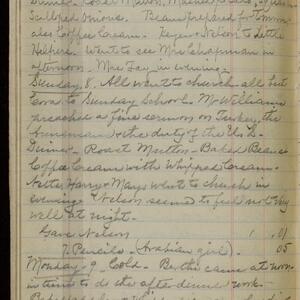 Dinner - Roast Mutton, Mashed
Scalloped Onions. Beans prepared for tomorrow
also Coffee Cream. Nelson to Settle
Helpers. Went to see Mrs Chapman in
afternoon. Mrs Fay in evening.
Sunday, 8. All went to church all but
Cora to Sunday School. Mr Williams
preached a fine sermon on Turkey, the
Armenian & the duty of the U.S.
Dinner - Roast Mutton - Baked Beans
Coffee Cream with Whipped Cream.
Hattie, Harry & Mary went to church in
evening. Nelson seemed to feel not very
well at night.
Gave Nelson 1 .01
7. Pencils (Arabian girl). 05
Monday - 9 - Cold. Bertha came at noon
in time to do the after dinner work.